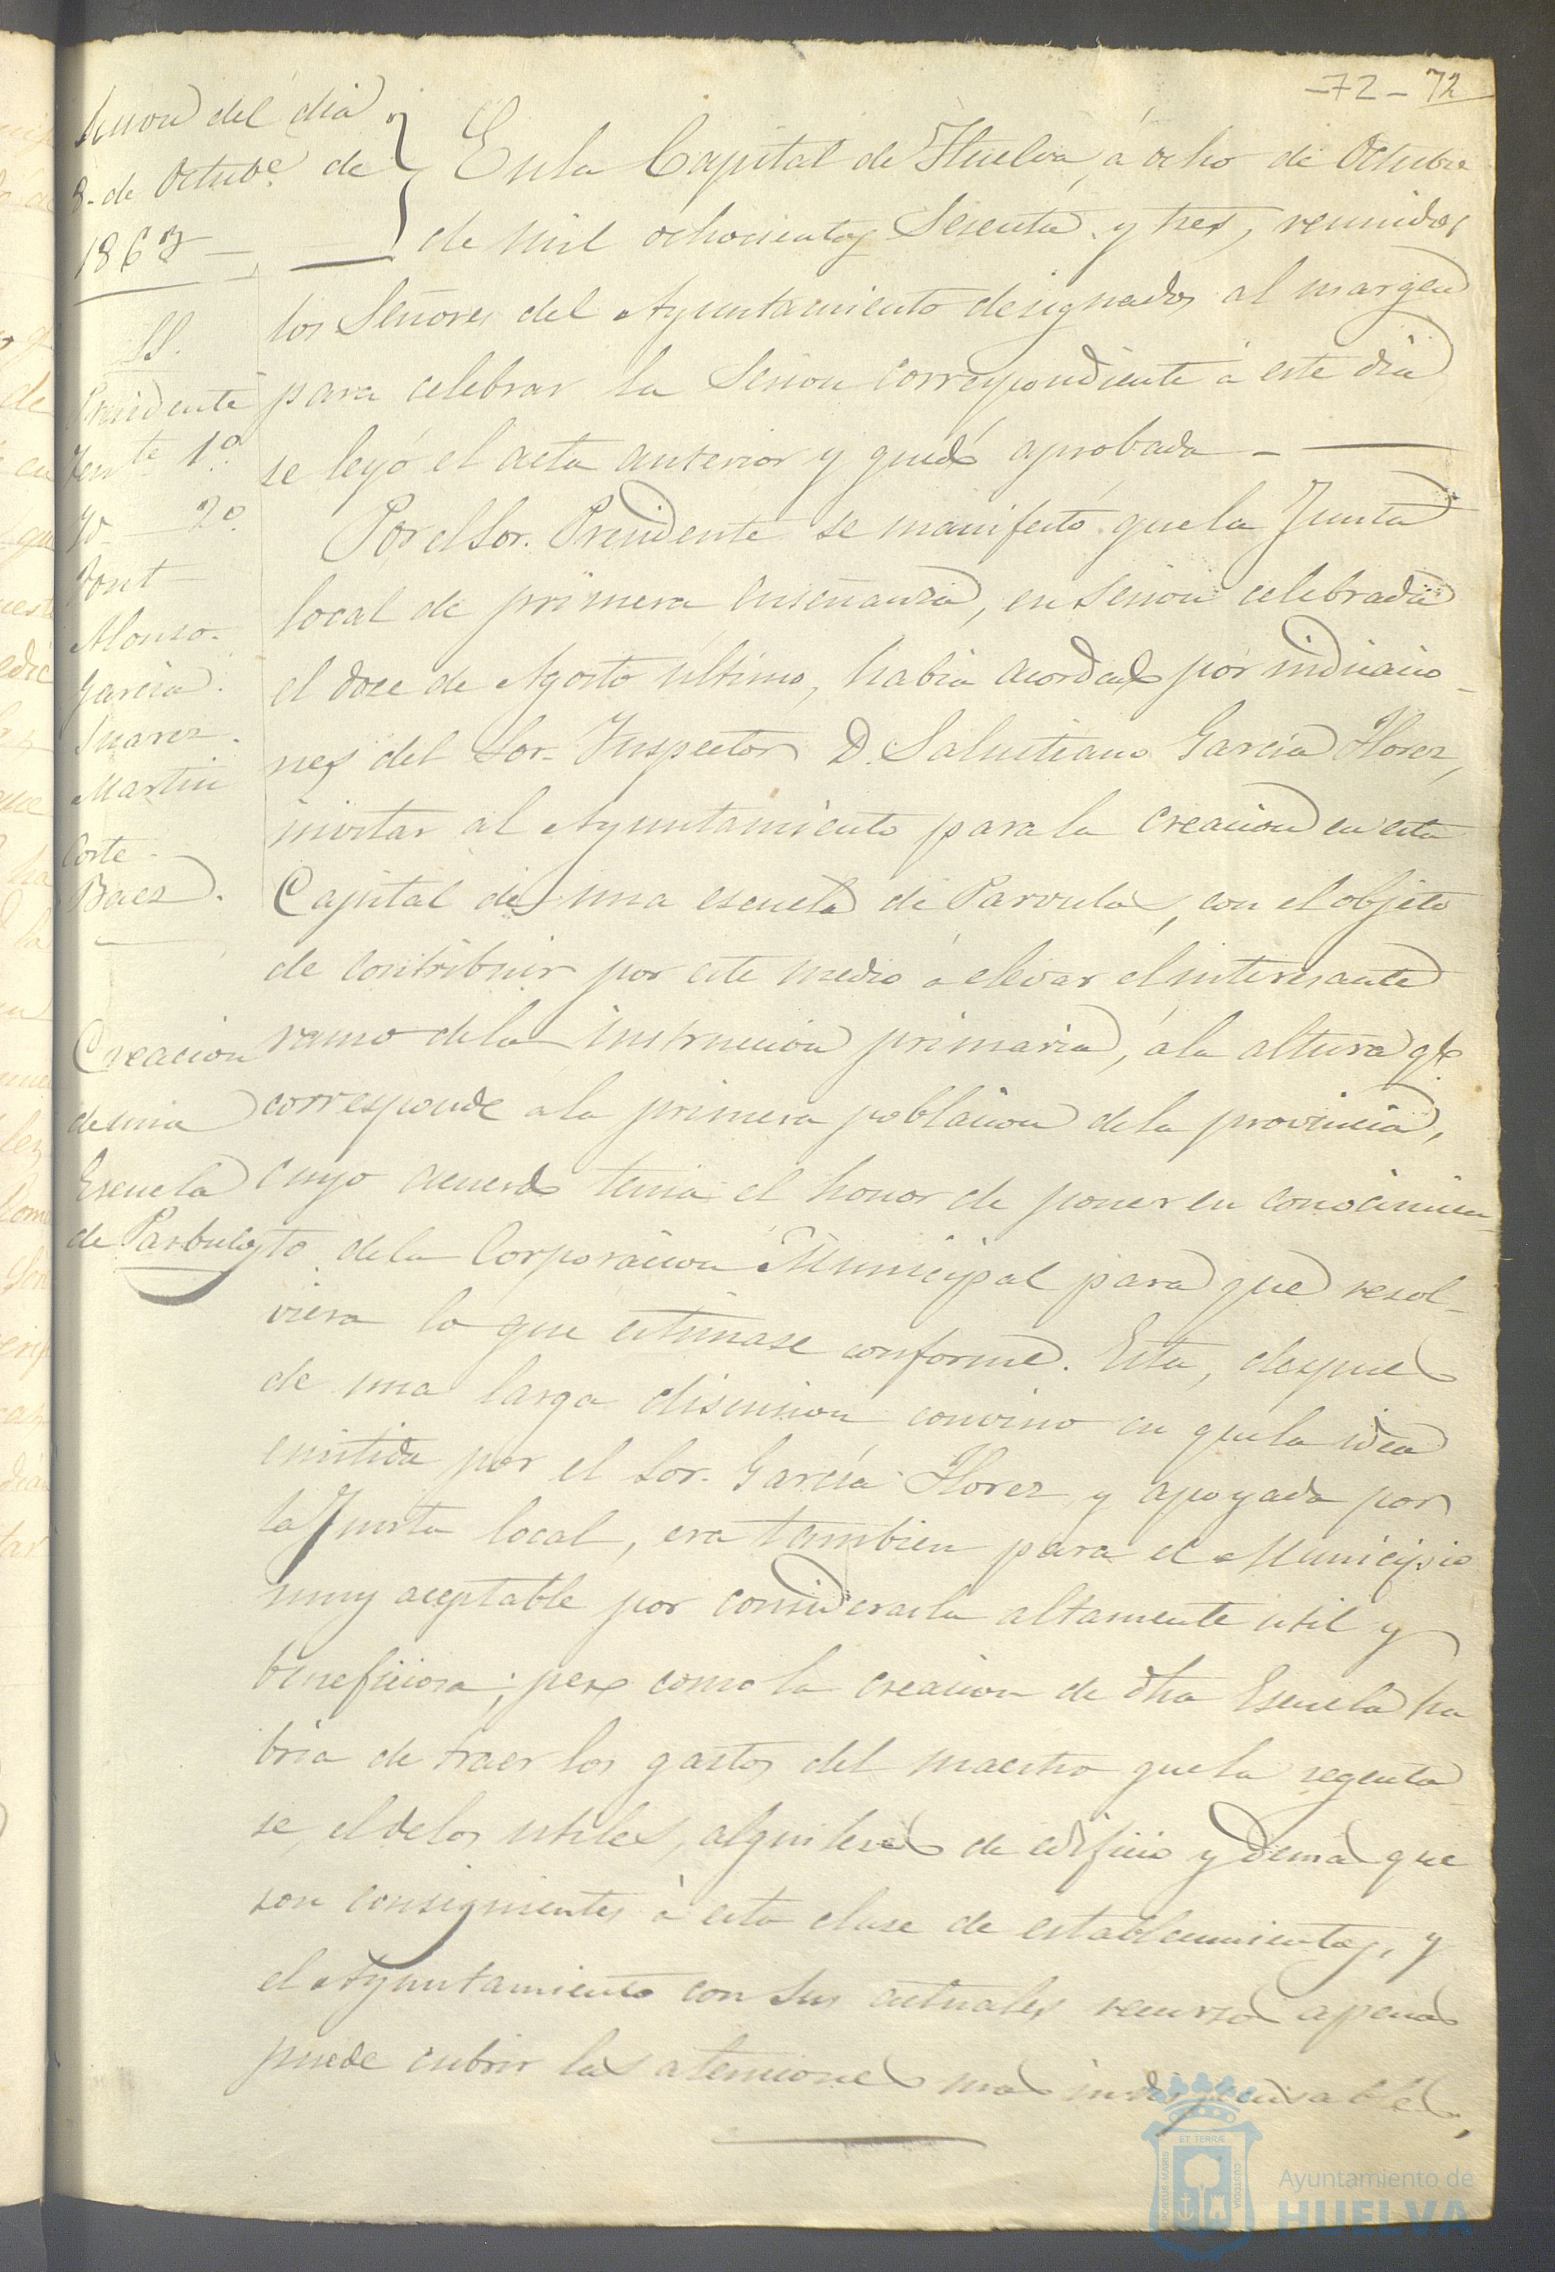 -72- 72
Sesion del dia
8. de Octube. de
1863
SS.
Presidente
Tente 1º.
Yd — 2º.
Font
Alonso.
Garcia.
Suarez.
Martin
Corte.
Baez.
Creacion
de una
Escuela
de Parbulos
En la Capital de Huelva, á ocho de Octubre
de mil ochocientos Sesenta y tres, reunidos
los Señores del Ayuntamiento designados al margen
para celebrar la Sesion correspondiente á este dia
se leyó el acta anterior y quedó aprobada
Por el Sor. Presidente se manifestó que la Junta
local de primera enseñanza, en sesion celebrada
el doce de Agosto último, habia acordado por indicacio-
nes del Sor. Inspector D. Salustiano Garcia Florez,
invitar al Ayuntamiento para la creacion en esta
Capital de una escuela de Parvulos, con el objeto
de contribuir por este medio á elevar el interesante
ramo de la instruccion primaria, á la altura qe.
corresponde á la primera poblacion de la provincia,
cuyo acuerdo tenia el honor de poner en conocimien-
to de la Corporacion Municipal para que resol-
viera lo que estimase conforme. Esta, despues
de una larga discusion convino en que la idea
emitida por el Sor. García Florez y apoyada por
la Junta local, era tambien para el Municipio
muy aceptable por considerarla altamente util y
beneficiosa; pero como la creacion de dha Escuela ha
bria de traer los gastos del maestro que la regenta-
se, el de los utiles, alquileres de edificio y demas que
son consiguientes á esta clase de establecimientos, y
el Ayuntamiento con sus actuales recursos apenas
puede cubrir las atenciones mas indispensables,
PORTUS MARIS
ET TERRÆ
CUSTODIA
Ayuntamiento de
HUELVA